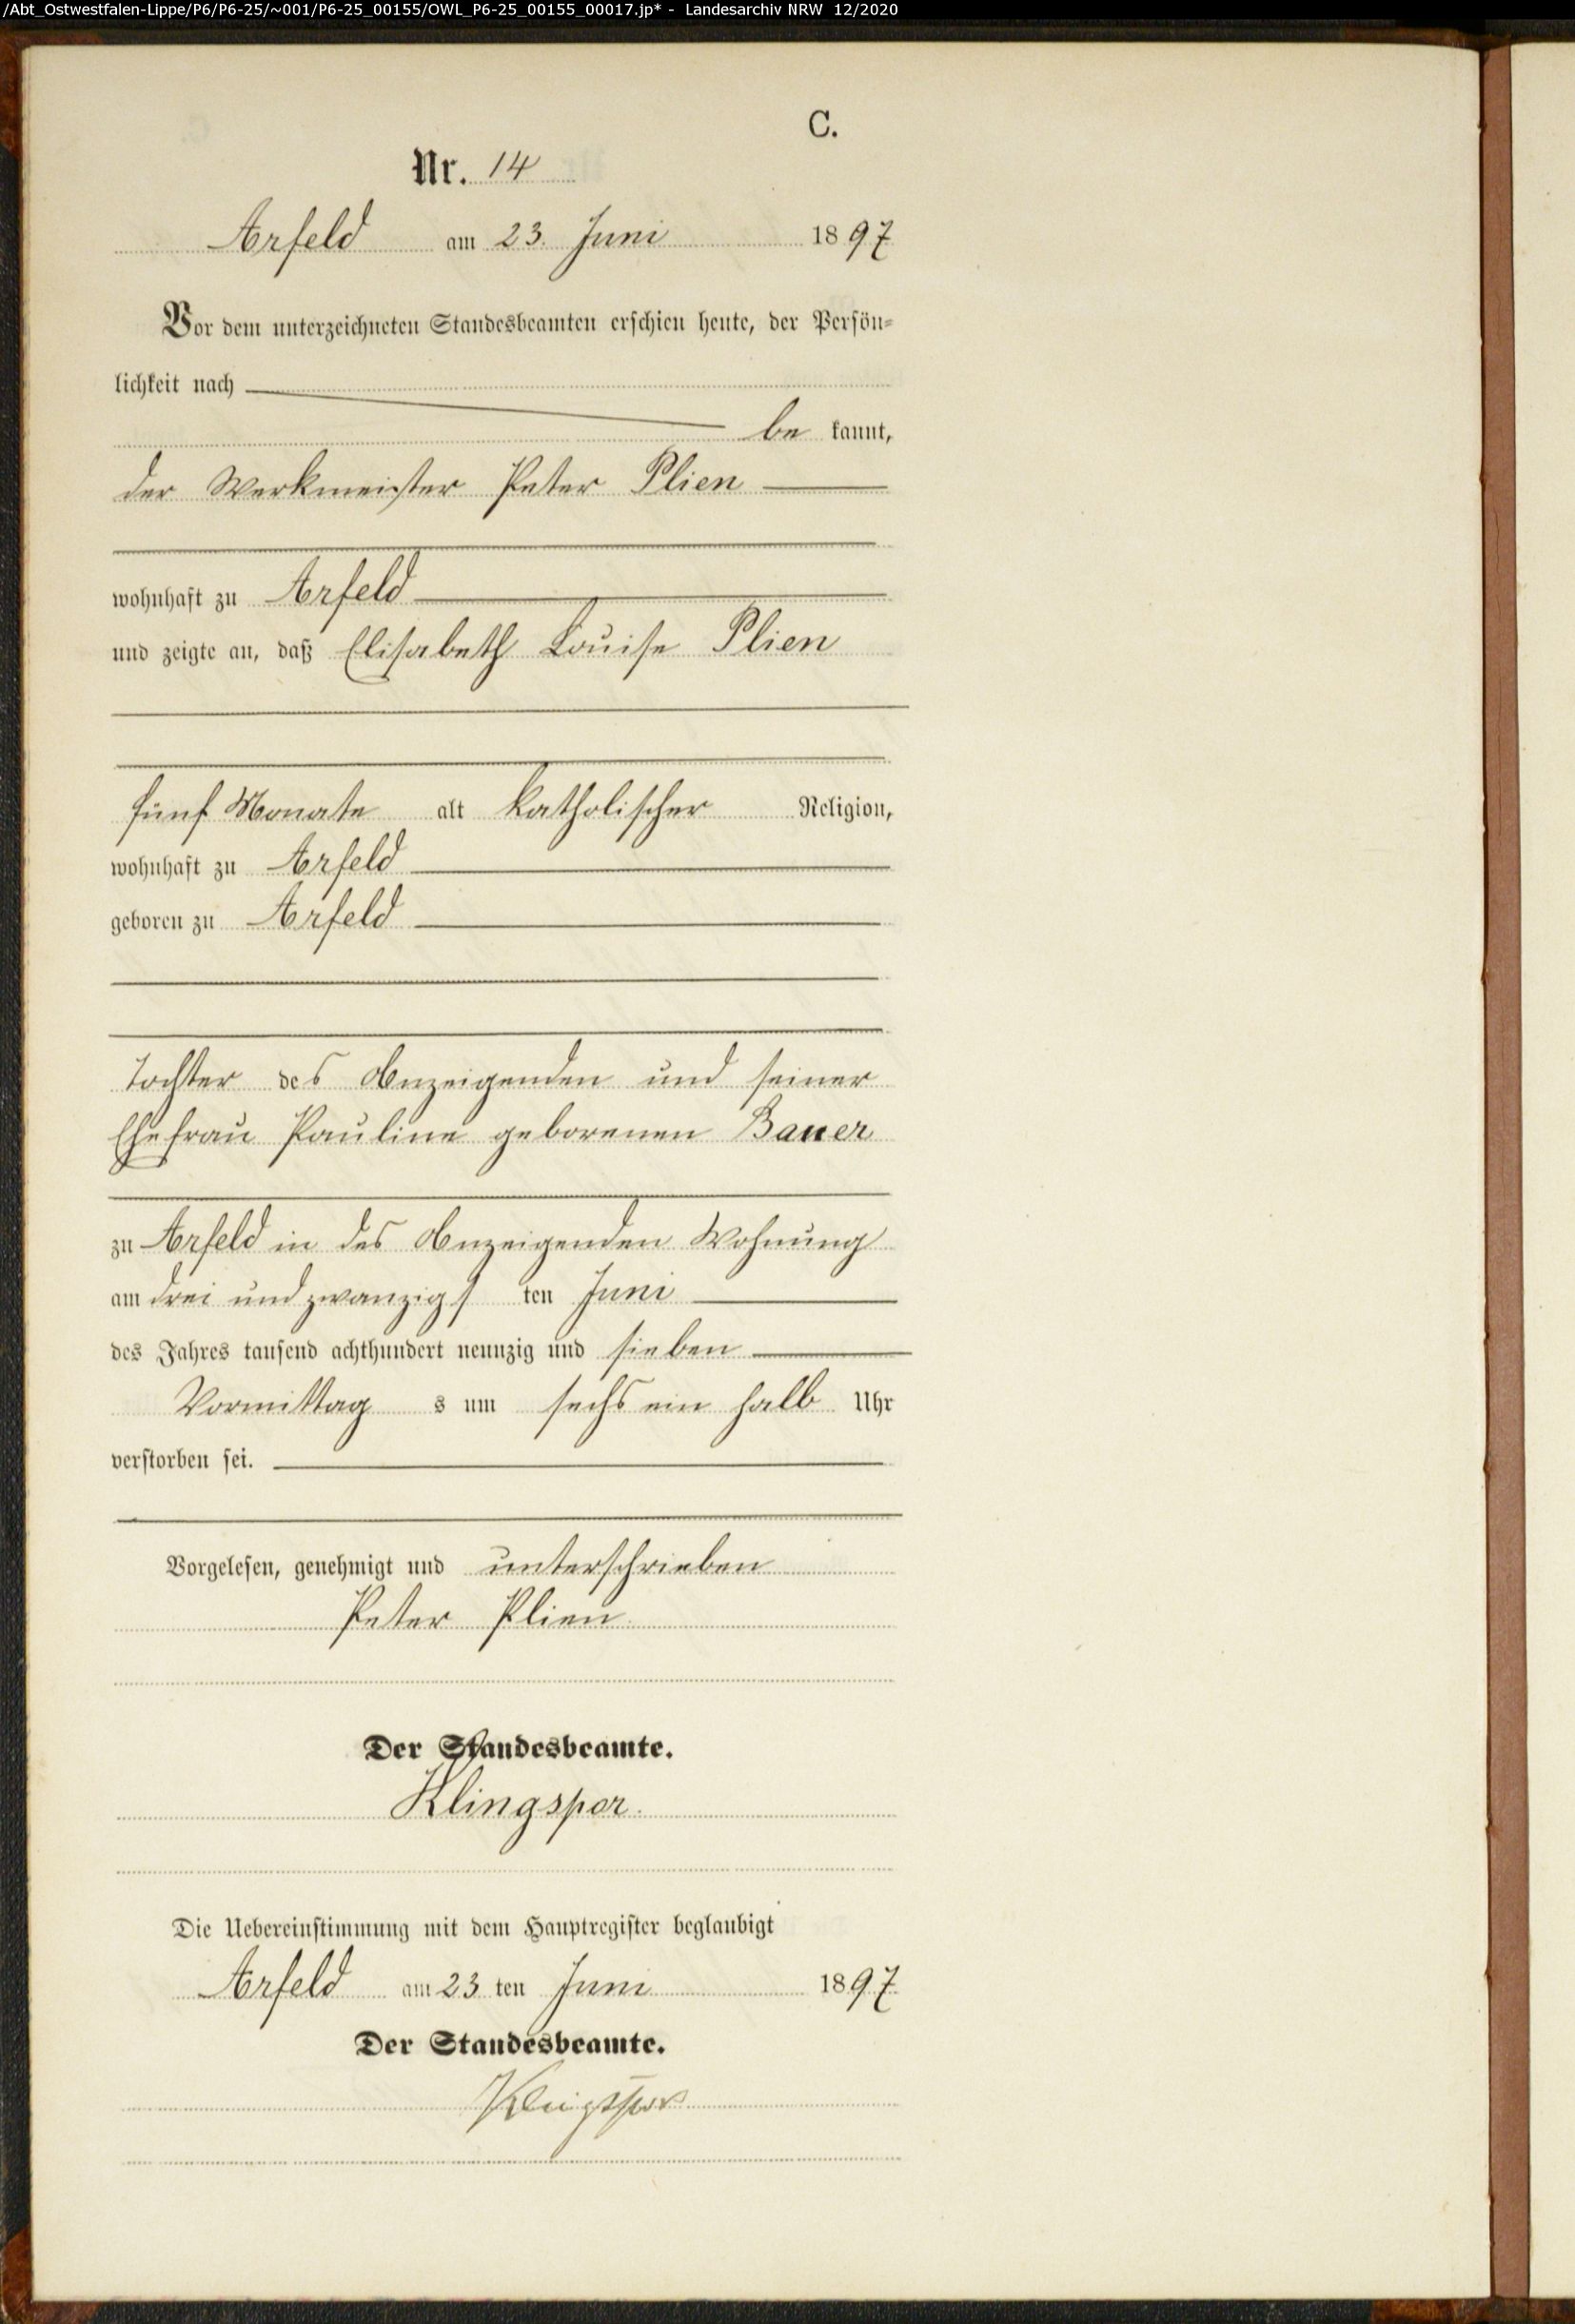 /Abt_Ostwestfalen-Lippe/P6/P6-25/~001/P6-25_00155/OWL_P6-25_00155_00017.jp* - Landesarchiv NRW 12/2020
C.
Nr. 14
Arfeld am 23. Juni 1897
Vor dem unterzeichneten Standesbeamten erschien heute, der Persön-
lichkeit nach
be kannt,
der Werkmeister Peter Plien
wohnhaft zu Arfeld
und zeigte an, daß Elisabeth Louise Plien
fünf Monate alt katholischer Religion,
wohnhaft zu Arfeld
geboren zu Arfeld
Tochter des Anzeigenden und seiner
Ehefrau Pauline geborenen Bauer
zu Arfeld in des Anzeigenden Wohnung
am drei und zwanzigs ten Juni
des Jahres tausend achthundert neunzig und sieben
Vormittag s um sechs ein halb Uhr
verstorben sei.
Vorgelesen, genehmigt und unterschrieben
Peter Plien
Der Standesbeamte.
Klingspor.
Die Uebereinstimmung mit dem Hauptregister beglaubigt
Arfeld am 23 ten Juni 1897
Der Standesbeamte.
Klingspor